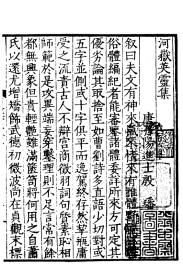 河嶽英靈集
唐丹陽進士殷 璠
叙曰夫文有神來氣來情來有雅體野體鄙體
俗體編紀者能審鑒諸體委詳所來方可定其
優劣論其取捨至如曹劉詩多直語少切對或
五字並側或十字俱平而逸駕終存然挈瓶膚
受之流責古人不辯宮商徵羽詞句質素恥相
師範於是攻異端妄穿鑿理則不足言常有餘
都無興象但貴輕艷雖滿篋笥將何用之自蕭
氏以還尤增矯飾武德初微波尚在貞觀末標